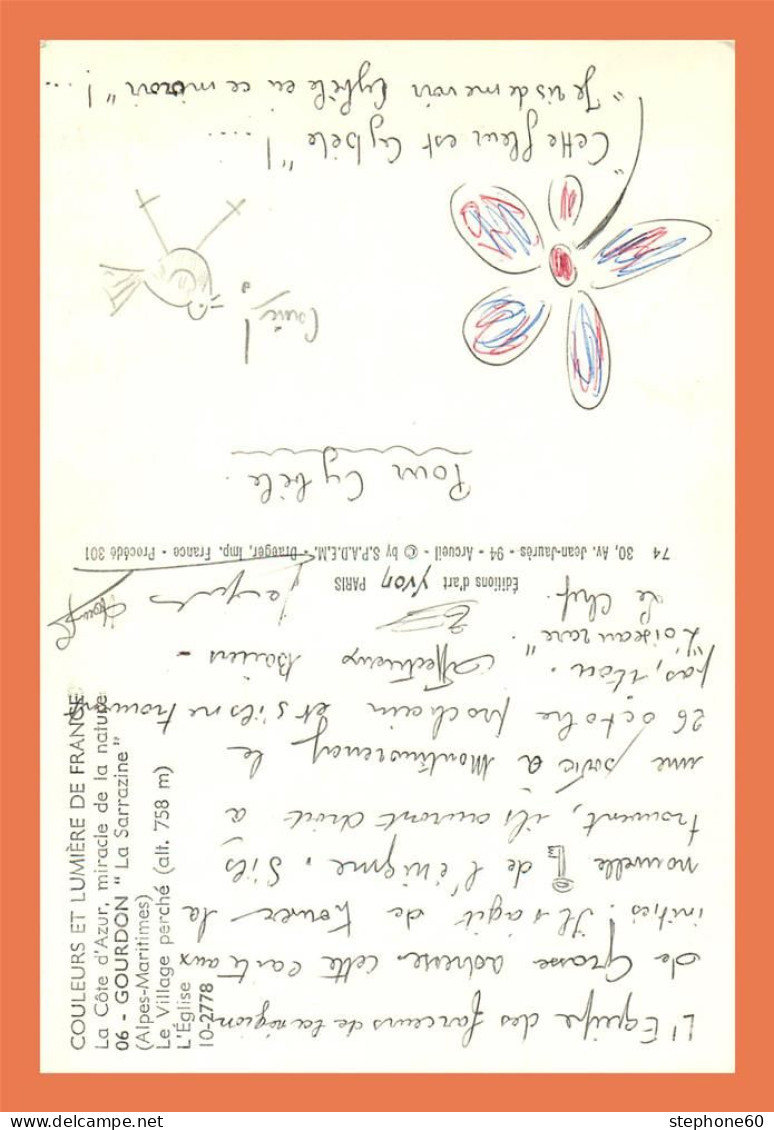 L'Equipe des farceurs de la région
de Grasse adresse cette carte aux
initiés ! Il s'agit de trouver la
nouvelle de l'énigme. S'ils
trouvent, ils auront droit à
une partie à Montmorency le
26 octobre prochain et s'ils ne trouvent
pas, non. Affectueux Baisers -
"L'oiseau rare".
Le Chef.
Éditions d'art YVON PARIS
74 30, Av. Jean-Jaurès - 94 - Arcueil - © by S.P.A.D.E.M. - Draeger, Imp. France - Procédé 301
Pour Cybèle.
Couic !
"Cette fleur est Cybèle" ! ....
"Je ris de me voir Cybèle en ce miroir" ! ...
COULEURS ET LUMIÈRE DE FRANCE
La Côte d'Azur, miracle de la nature
06 - GOURDON "La Sarrazine"
(Alpes-Maritimes)
Le Village perché (alt. 758 m)
L'Église
10-2778
stephone60